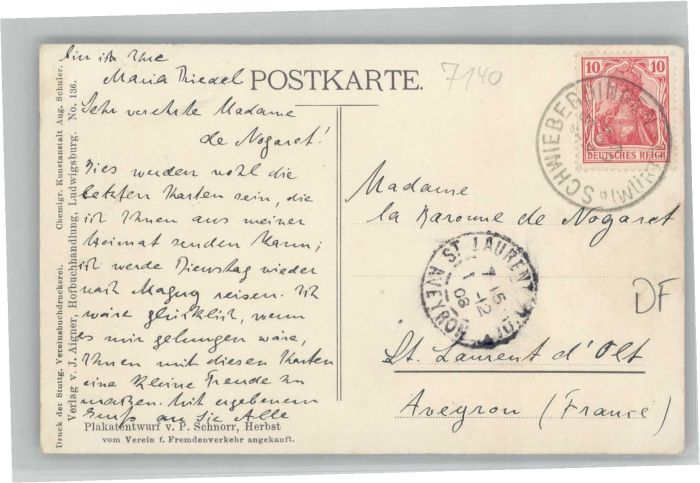 bin ich Ihre
Maria Thiedel
POSTKARTE.
7140
Sehr verehrte Madame
de Nogaret!
Dies werden wohl die
letzten Karten sein, die
ich Ihnen aus meiner
Heimat senden kann;
ich werde Dienstag wieder
nach reisen. Ich
wäre glücklich, wenn
es mir gelungen wäre,
Ihnen mit diesen Karten
eine kleine Freude zu
machen. Mit ergebenem
Gruß an Sie Alle
Plakatentwurf v. P. Schnorr, Herbst
vom Verein f. Fremdenverkehr angekauft.
Druck der Stuttg. Vereinsbuchdruckerei. Chemigr. Kunstanstalt Aug. Schuler.
Verlag v. J. Aigner, Hofbuchhandlung, Ludwigsburg. No. 136.
10 10
DEUTSCHES REICH
SCHWIEBERDINGEN
(WÜRTT)
Madame
la Baronne de Nogaret
ST LAURENT D'OLT
7 15
1 -12
08
AVEYRON
DF
St. Laurent d'Olt
Aveyron (France)